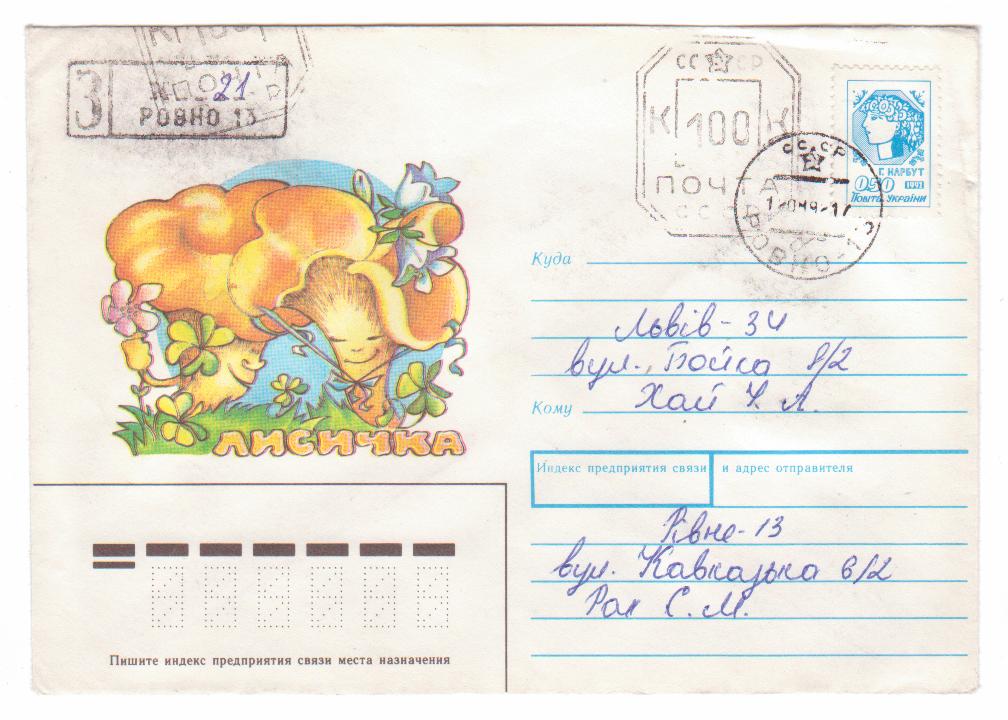 З
№ 21
РОВНО 13
ПОЧТА
СССР
К 100 К
ПОЧТА
СССР
Г. НАРБУТ
0.50 1992
ПОШТА УКРАЇНИ
СССР
РОВНО-13
Куда
Львів - 34
вул. Бойка 8/2
Кому
Хай У. А.
ЛИСИЧКА
Индекс предприятия связи и адрес отправителя
Рівне-13
вул. Кавказька 6/2
Рак С. М.
Пишите индекс предприятия связи места назначения